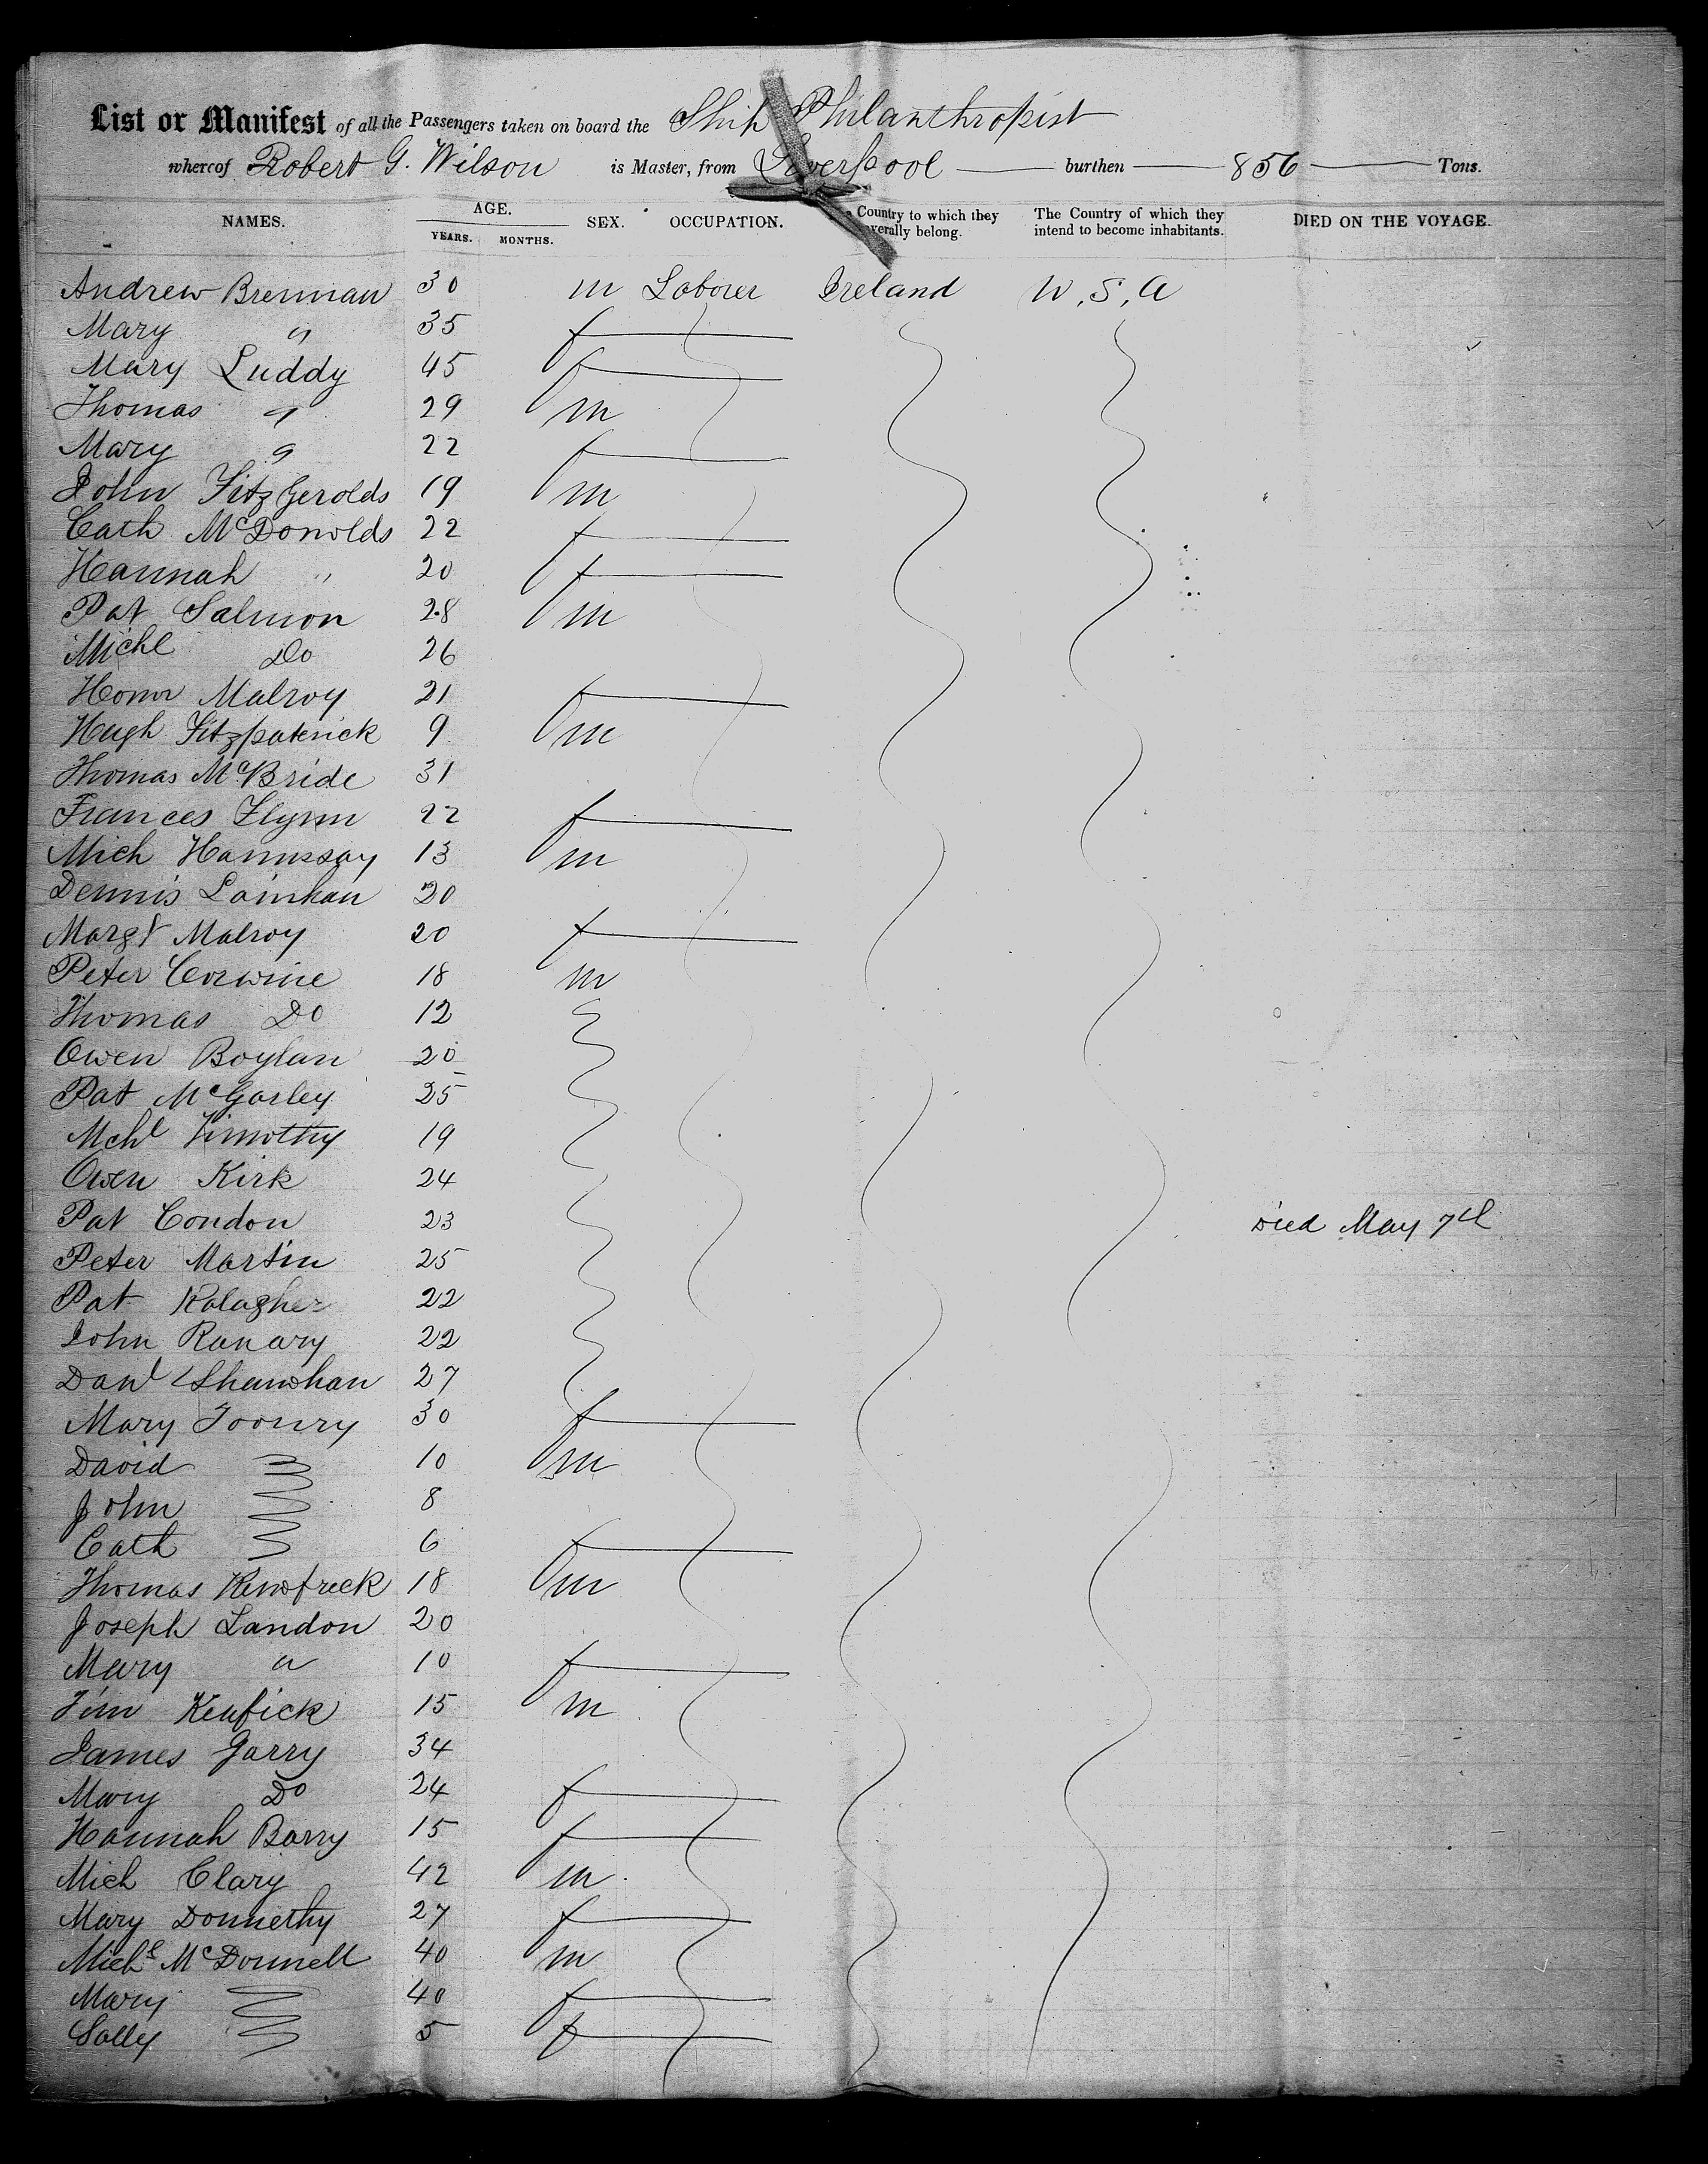 List or Manifest of all the Passengers taken on board the Ship Philanthropist
whereof Robert G. Wilson is Master, from Liverpool burthen 856 Tons.
NAMES. AGE. YEARS. MONTHS. SEX. OCCUPATION. Country to which they severally belong. The Country of which they intend to become inhabitants. DIED ON THE VOYAGE.
Andrew Brennan 30 m Laborer Ireland U.S.A
Mary " 35 f
Mary Luddy 45 f
Thomas " 29 m
Mary " 22 f
John FitzGerolds 19 m
Cath McDonolds 22 f
Hannah " 20 f
Pat Salmon 28 m
Michl Do 26
Honor Malroy 21 f
Hugh Fitzpatrick 9 m
Thomas McBride 31
Frances Flynn 22 f
Mich 13 m
Dennis 20
Margt Malroy 20 f
Peter Corwine 18 m
Thomas Do 12
Owen Boylan 20
Pat McGorley 25
Mchl Timothy 19
Owen Kirk 24
Pat Condon 23 Died May 7th
Peter Martin 25
Pat Kalagher 22
John Ranary 22
Danl Shanahan 27
Mary 30 f
David 10 m
John 8
Cath 6 f
Thomas 18 m
Joseph Landon 20
Mary " 10 f
Tim Kenfick 15 m
James Garry 34
Mary Do 24 f
Hannah Barry 15 f
Mich Clary 42 m
Mary Donnethy 27 f
Michl McDonnell 40 m
Mary 40 f
Sally 5 f